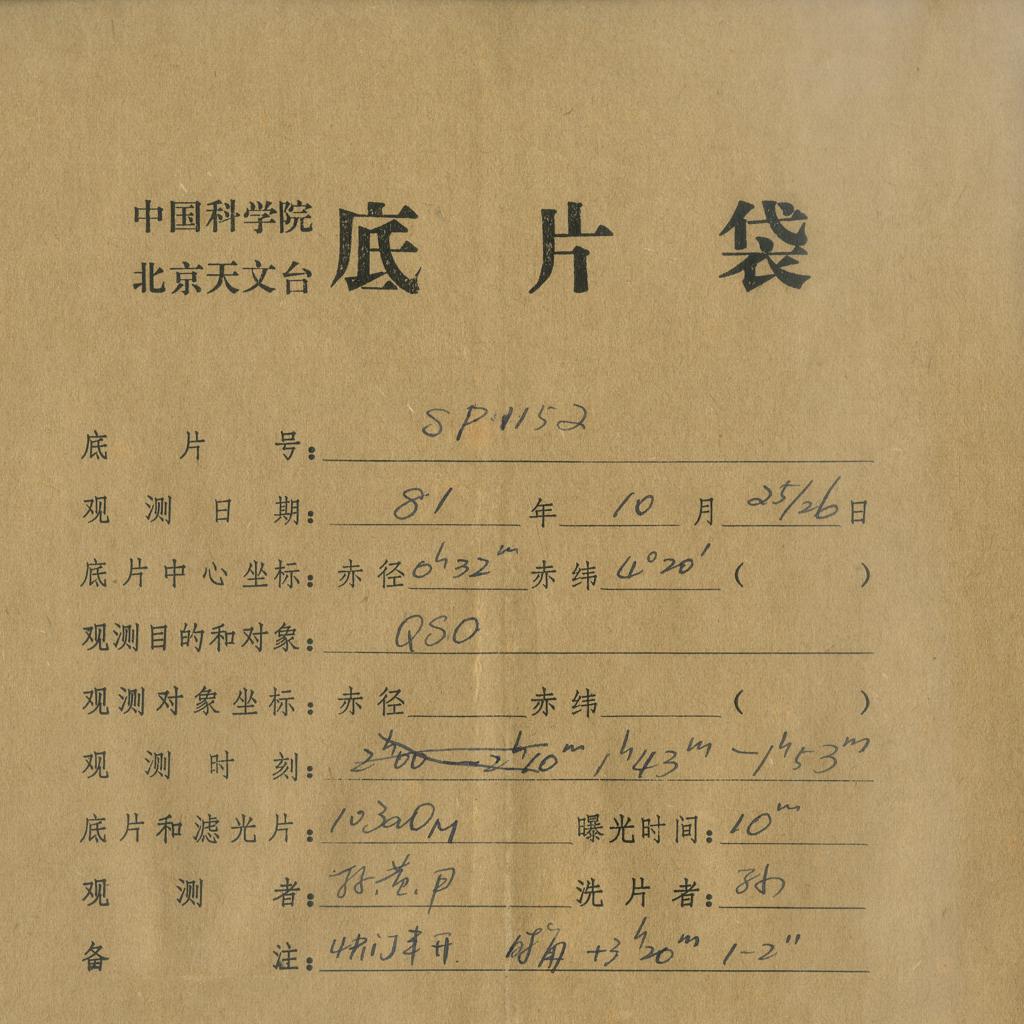 中国科学院
北京天文台
底片袋
底片号: SP1152
观测日期: 81年10月25/26日
底片中心坐标: 赤径0ʰ32ᵐ赤纬4°20′( )
观测目的和对象: QSO
观测对象坐标: 赤径 赤纬 ( )
观测时刻: 2ʰ00—2ʰ10ᵐ 1ʰ43ᵐ—1ʰ53ᵐ
底片和滤光片: 103aO 曝光时间: 10ᵐ
观测者: 孙.黄.甲 洗片者: 孙
备注: 快门未开 时角 +3ʰ20ᵐ 1-2″